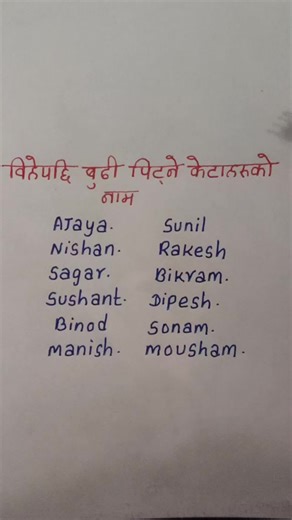 विहेपछि बुढी पिट्ने केटाहरुको
नाम
AJaya. Sunil
Nishan. Rakesh
Sagar. Bikram.
Sushant. Dipesh.
Binod Sonam.
manish. mousham.